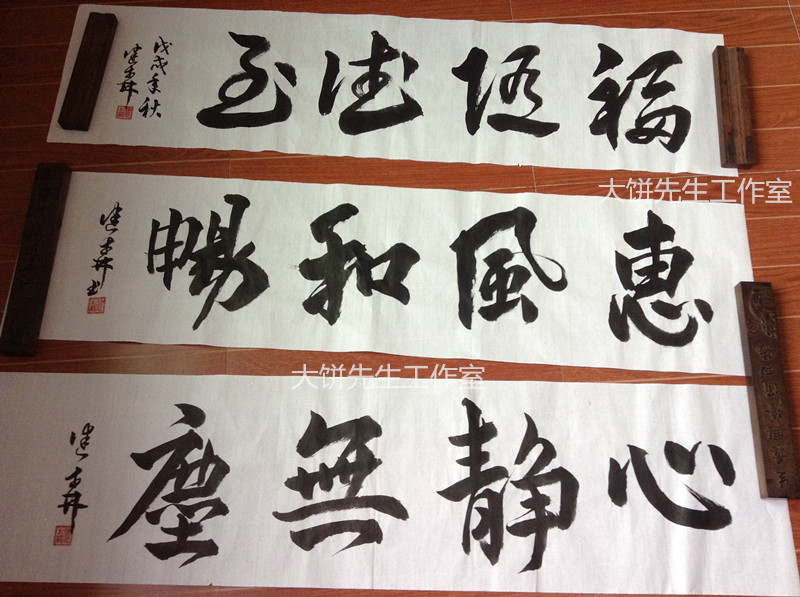 福随德至
戊戌年秋
大饼先生工作室
惠风和暢
大饼先生工作室
心静無塵